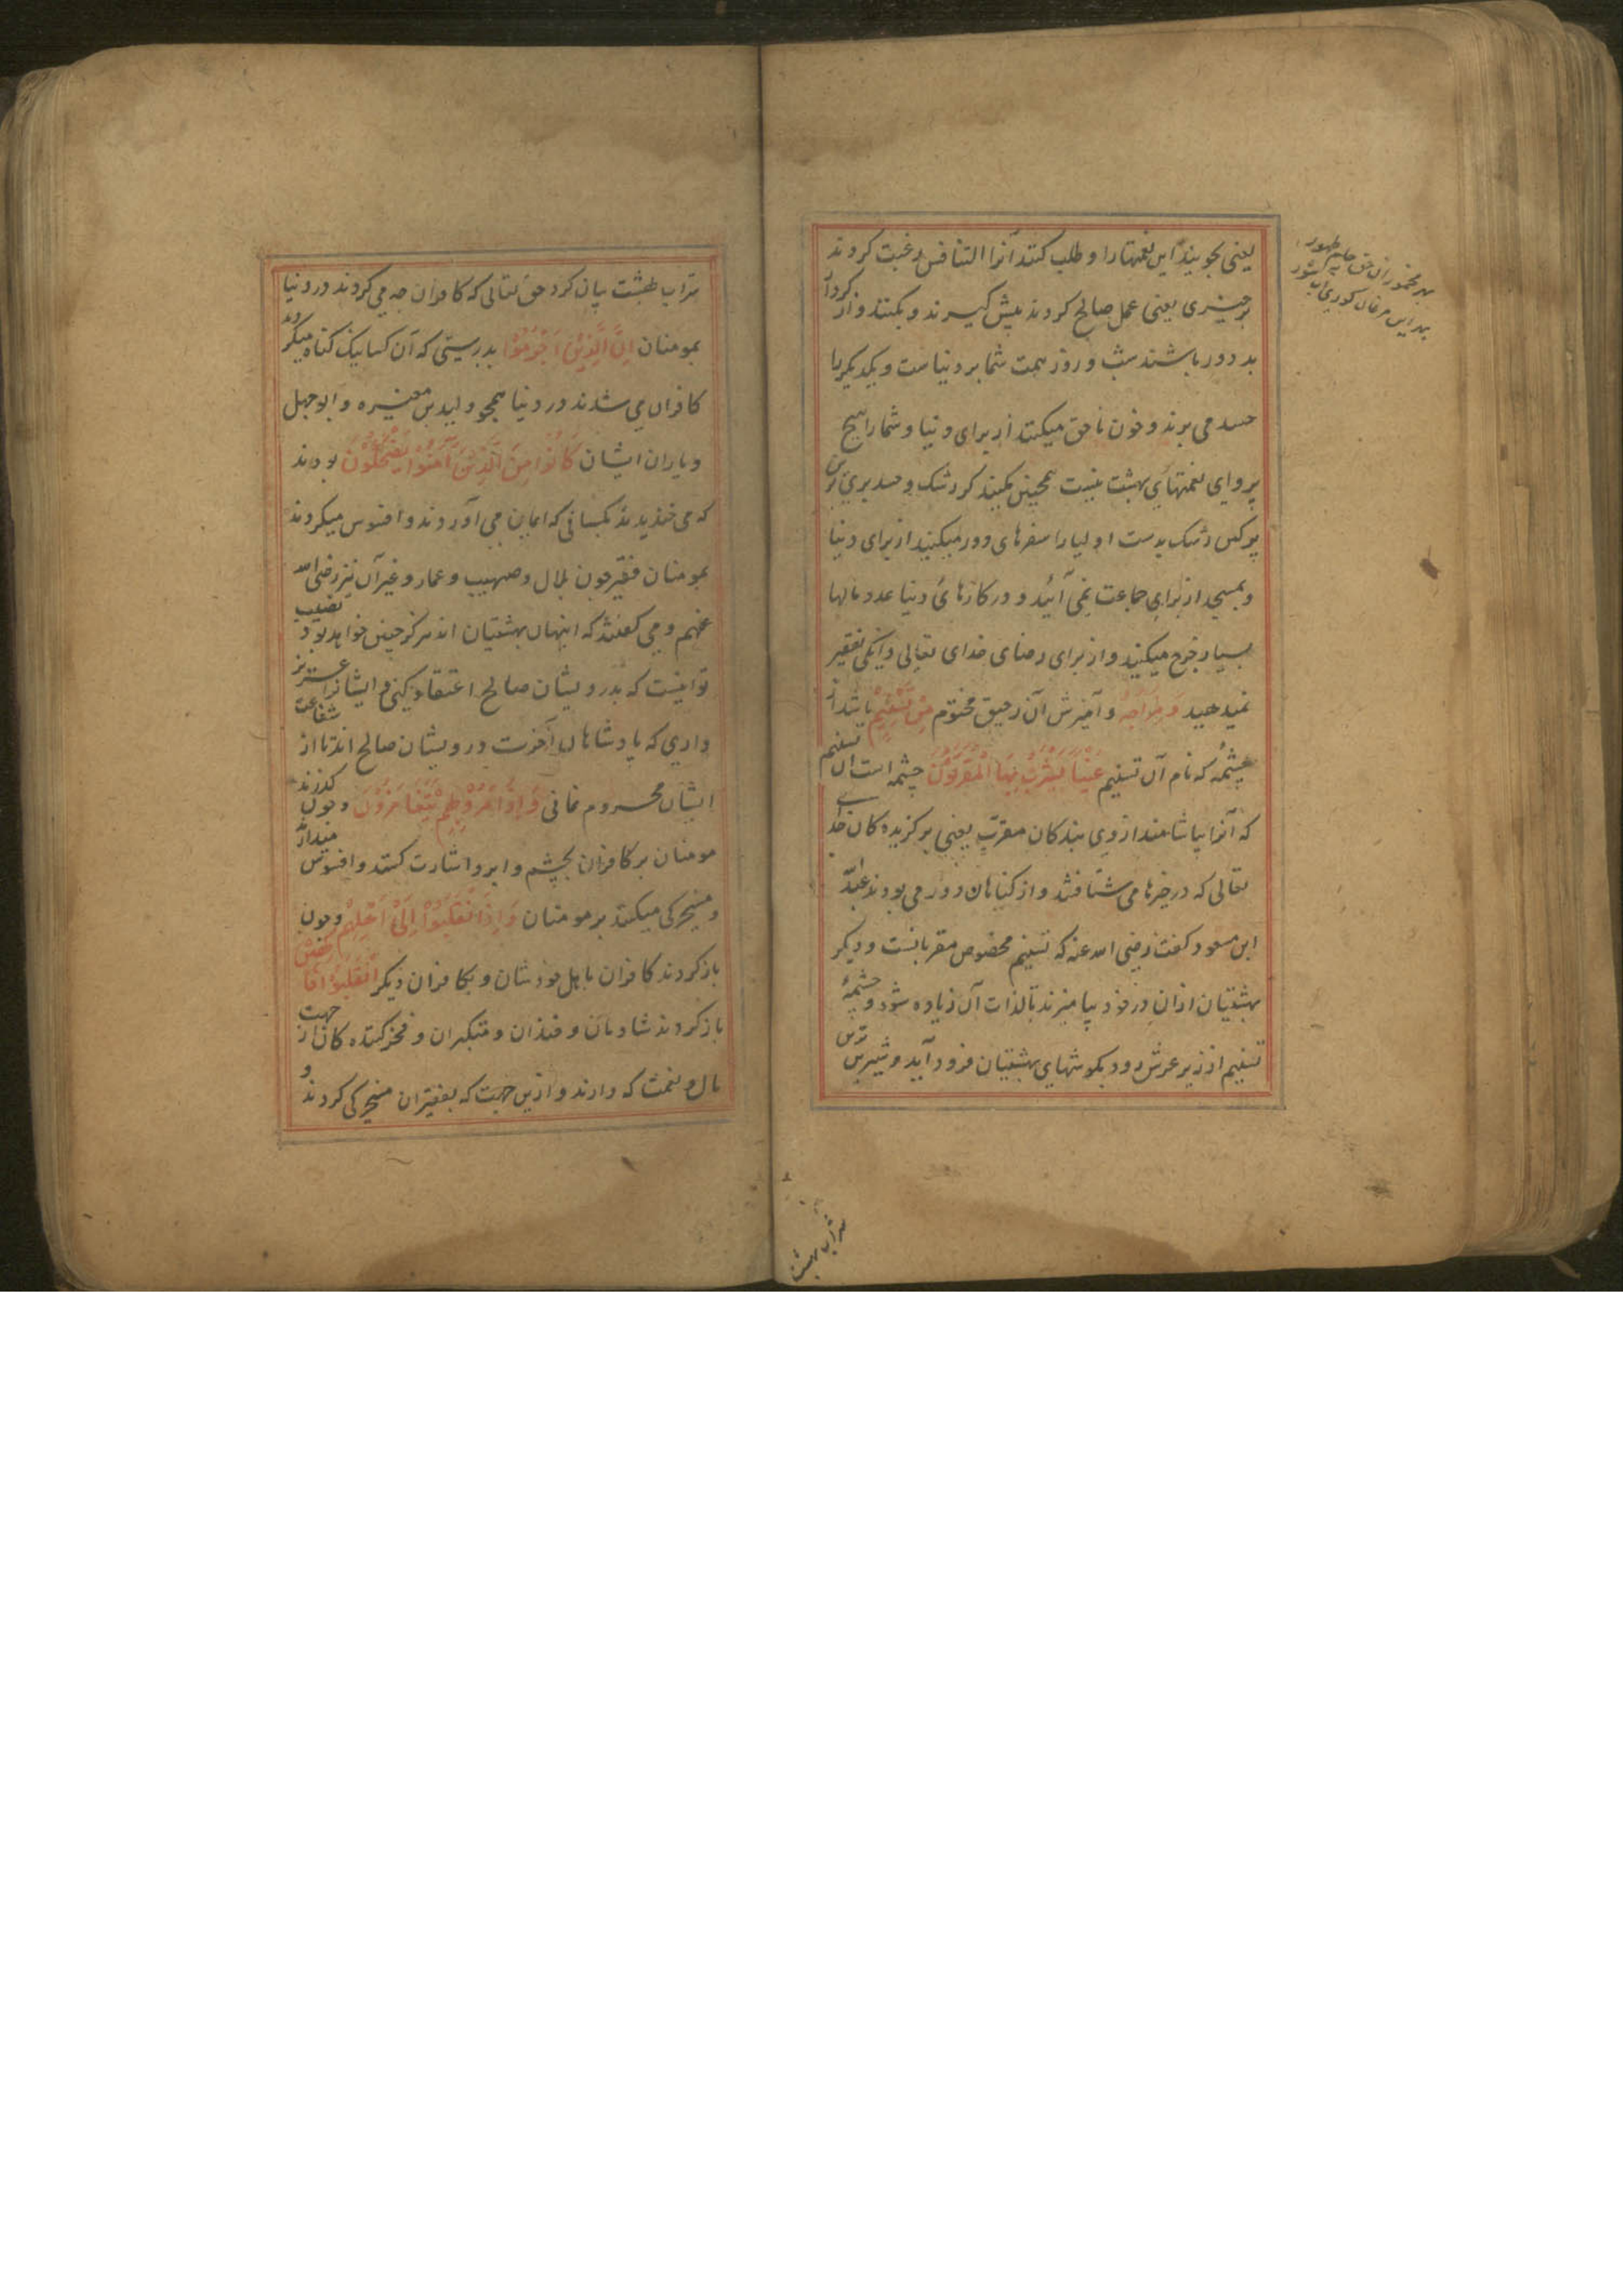 یعنی بجویند این نعمتها را و طلب کنند آنرا التنافس رغبت کردند
برچیزی یعنی عمل صالح کردند پیش گیرند و بکنند و از کردار
بد دور باشند شب و روز همت شما بر دنیاست و یکدیگر را
حسد می برند و خون ناحق میکنند از برای دنیا و شما را هیچ
پروای نعمتهای بهشت نیست همچنین بکنید که رشک و حسد برین
رشک بدست اولیا را سفرهای دور میکنید از برای دنیا
و بمسجد از برای جماعت نمی آئید و در کارهای دنیا عدد مالها
بسیار خرج میکنید و از برای رضای خدای تعالی دانکی بفقیر
نمیدهید وَ مِزَاجُهُ و آمیزش آن رحیق مختوم مِنْ تَسْنِیْمٍ باشد از
چشمهٔ که نام آن تسنیم عَیْناً یَشْرَبُ بِهَا الْمُقَرَّبُوْنَ چشمه است آن تسنیم
که آنرا بیاشامند از وی بندکان مقرب یعنی برکزیده کان خدا
تعالی که در خیرها می شتافتند و از کناهان دور می بودند عبد الله
ابن مسعود کفت رضی الله عنه که تسنیم مخصوص مقربانست و دیکر
بهشتیان از آن در خود بیامیزند تا لذات آن زیاده شود و چشمهٔ
تسنیم از زیر عرش رود بکوشهای بهشتیان فرود آید و شیرین ترین
شراب بهشت
شراب بهشت بیان کرد حق تعالی که کافران چه می کردند در دنیا
بمومنان اِنَّ الَّذِیْنَ اَجْرَمُوْا بدرستی که آن کسانیک کناه میکردند
کافران می شدند در دنیا همچو ولید بن مغیره و ابوجهل
و یاران ایشان کَانُوْا مِنَ الَّذِیْنَ آمَنُوْا یَضْحَکُوْنَ بودند
که می خندیدند بکسانی که ایمان می آوردند و افسوس میکردند
بمومنان فقیر چون بلال و صهیب و عمار و غیر آن نیز رضی الله
عنهم و می کفتند که اینهان بهشتیان اند هرکز چنین خواهد بود نصیب
تو اینست که بدرویشان صالح اعتقاد کنی و ایشانرا عزیز
داری که پادشاهان آخرت درویشان صالح اند تا از شفاعت
ایشان محروم نمانی وَ اِذَا مَرُّوْا بِهِمْ یَتَغَامَزُوْنَ و چون کذرند
مومنان بر کافران بچشم و ابرو اشارت کنند و افسوس میدارند
و مسخرکی میکنند بر مومنان وَ اِذَا انْقَلَبُوْا اِلٰی اَهْلِهِمْ و چون
باز کردند کافران باهل خودشان و بکافران دیکر انْقَلَبُوْا فَکِهِیْنَ
باز کردند شادمان و خندان و متکبران و فخر کننده کان از جهت
مال و نعمت که دارند و ازین جهت که بفقیران مسخرکی کردند و